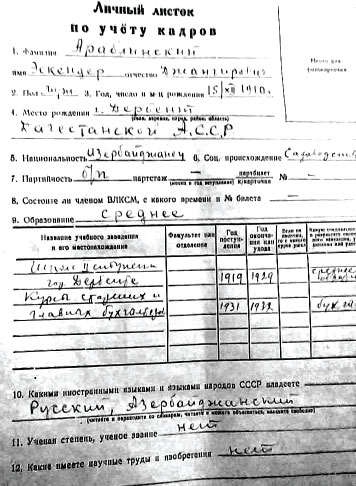 Личный листок
по учёту кадров
1. Фамилия Араблинский
имя Эскендер отчество Джангирович
2. Пол муж. 3. Год, число и м-ц рождения 15/XII 1910.
4. Место рождения г. Дербент
(село, деревня, город, район, область)
Дагестанской А.С.С.Р
5. Национальность Азербайджанец 6. Соц. происхождение
7. Партийность б/п партстаж — партбилет № —
к/карточка
8. Состоите ли членом ВЛКСМ, с какого времени и № билета —
9. Образование Среднее
Название учебного заведения и его местонахождение
Факультет или отделение
Год поступления
Год окончания или ухода
Школа II ступени
гор. Дербент 1919 1929 среднее
Курсы старших и
главных бухгалтеров 1931 1932
10. Какими иностранными языками и языками народов СССР владеете
Русский, Азербайджанский
(читаете и переводите со словарем, читаете и можете объясняться, владеете свободно)
11. Ученая степень, ученое звание нет
12. Какие имеете научные труды и изобретения нет